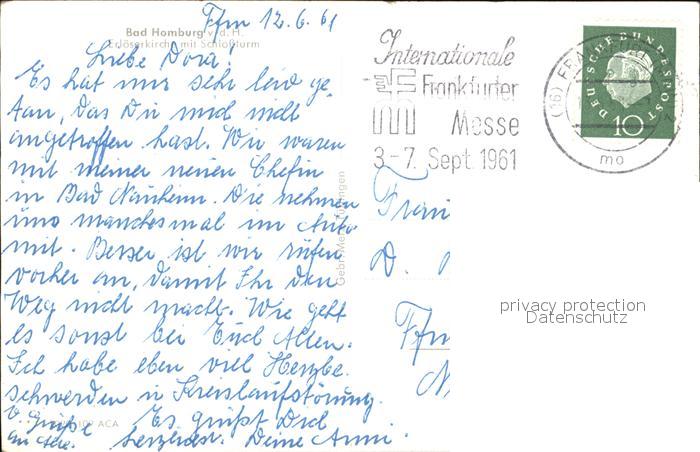 Ffm 12.6.61
Bad Homburg v. d. H.
Erlöserkirche mit Schloßturm
Liebe Dora!
Es hat mir sehr leid ge-
tan, das Du mich nicht
angetroffen hast. Wir waren
mit meiner neuen Chefin
in Bad Nauheim. Die nehmen
uns manchesmal im Auto
mit. Besser ist wir rufen
vorher an, damit Ihr den
Weg nicht macht. Wie geht
es sonst bei Euch Allen.
Ich habe eben viel Herzbe-
schwerden u Kreislaufstörung.
Es grüßt Dich
herzlichst. Deine Anni.
Grüße
an Alle.
ACA
Gebr. Metz, Tübingen
Internationale
Frankfurter
Messe
3.-7. Sept. 1961
(16) FRANKFURT
mo
DEUTSCHE BUNDESPOST
10
Frau
D.
Ffm
privacy protection
Datenschutz